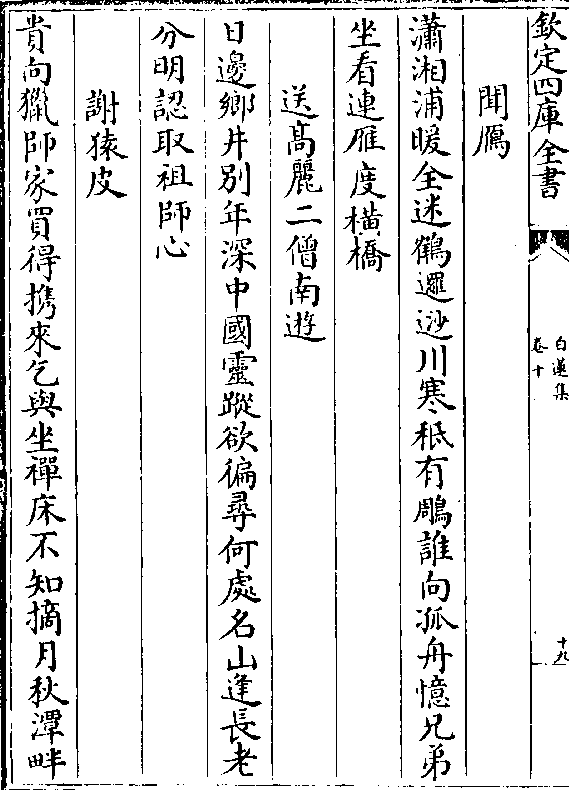 欽定四庫全書
白蓮集
卷十
十九
聞鴈
瀟湘浦暖全迷鶴邐迆川寒秪有鵰誰向孤舟憶兄弟
坐看連雁度橫橋
送髙麗二僧南遊
日邊鄉井別年深中國靈蹤欲徧尋何處名山逢長老
分明認取祖師心
謝猿皮
貴向獵師家買得携來乞與坐禪床不知摘月秋潭畔